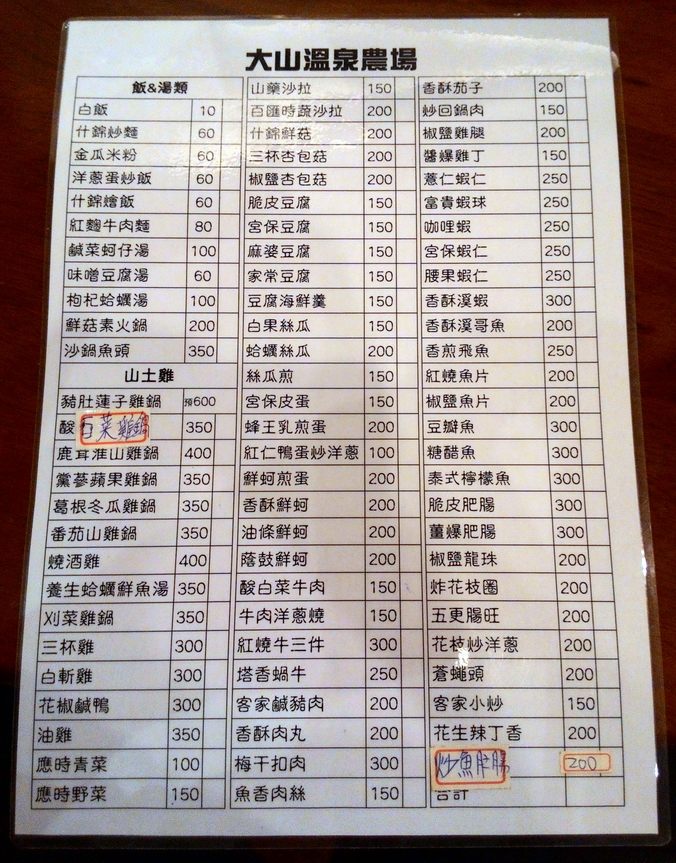 大山溫泉農場
飯&湯類
白飯 10
什錦炒麵 60
金瓜米粉 60
洋蔥蛋炒飯 60
什錦燴飯 60
紅麴牛肉麵 80
鹹菜蚵仔湯 100
味噌豆腐湯 60
枸杞蛤蠣湯 100
鮮菇素火鍋 200
沙鍋魚頭 350
山土雞
豬肚蓮子雞鍋 預600
酸石菜雞鍋 350
鹿茸淮山雞鍋 400
黨蔘蘋果雞鍋 350
葛根冬瓜雞鍋 350
番茄山雞鍋 350
燒酒雞 400
養生蛤蠣鮮魚湯 350
刈菜雞鍋 350
三杯雞 300
白斬雞 300
花椒鹹鴨 300
油雞 350
應時青菜 100
應時野菜 150
山藥沙拉 150
百匯時蔬沙拉 200
什錦鮮菇 200
三杯杏包菇 200
椒鹽杏包菇 200
脆皮豆腐 150
宮保豆腐 150
麻婆豆腐 150
家常豆腐 150
豆腐海鮮羹 150
白果絲瓜 150
蛤蠣絲瓜 200
絲瓜煎 150
宮保皮蛋 150
蜂王乳煎蛋 200
紅仁鴨蛋炒洋蔥 100
鮮蚵煎蛋 200
香酥鮮蚵 200
油條鮮蚵 200
蔭鼓鮮蚵 200
酸白菜牛肉 150
牛肉洋蔥燒 150
紅燒牛三件 300
塔香蝸牛 250
客家鹹豬肉 200
香酥肉丸 200
梅干扣肉 300
魚香肉絲 150
香酥茄子 200
炒回鍋肉 150
椒鹽雞腿 200
醬爆雞丁 150
薏仁蝦仁 250
富貴蝦球 250
咖哩蝦 250
宮保蝦仁 250
腰果蝦仁 250
香酥溪蝦 300
香酥溪哥魚 200
香煎飛魚 250
紅燒魚片 200
椒鹽魚片 200
豆瓣魚 300
糖醋魚 300
泰式檸檬魚 300
脆皮肥腸 300
薑爆肥腸 300
椒鹽龍珠 200
炸花枝圈 200
五更腸旺 200
花枝炒洋蔥 200
蒼蠅頭 200
客家小炒 150
花生辣丁香 200
炒魚肚腸 200
合計